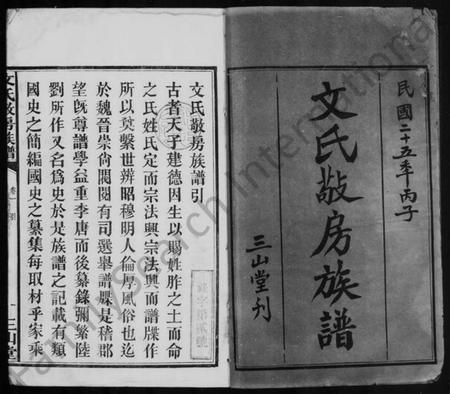 民國二十五年丙子
文氏敬房族譜
三山堂刋
文氏敬房族譜引
古者天子建德因生以賜姓胙之土而命
之氏姓氏定而宗法興宗法興而譜牒作
所以奠繫世辨昭穆明人倫厚風俗也迄
於魏晉崇尚閥閱有司選舉譜牒是稽郡
望旣尊譜學益重李唐而後纂錄彌繁陸
劉所作又名爲史於是族譜之記載有類
國史之簡編國史之纂集每取材乎家乘
文氏敬房族譜
卷一
引
一
三山堂
FamilySearch International